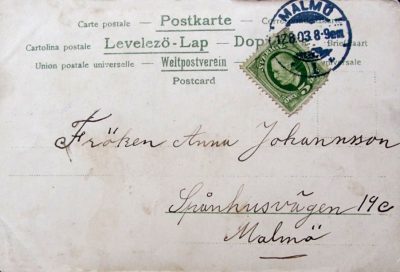 Carte postale — Postkarte — Co
Cartolina postale — Levelezö-Lap — Dopi Briefkaart
Union postale universelle — Weltpostverein
Postcard
MALMÖ
12.8.03 8-9em
Fröken Anna Johannsson
Spånhusvägen 19c
Malmö